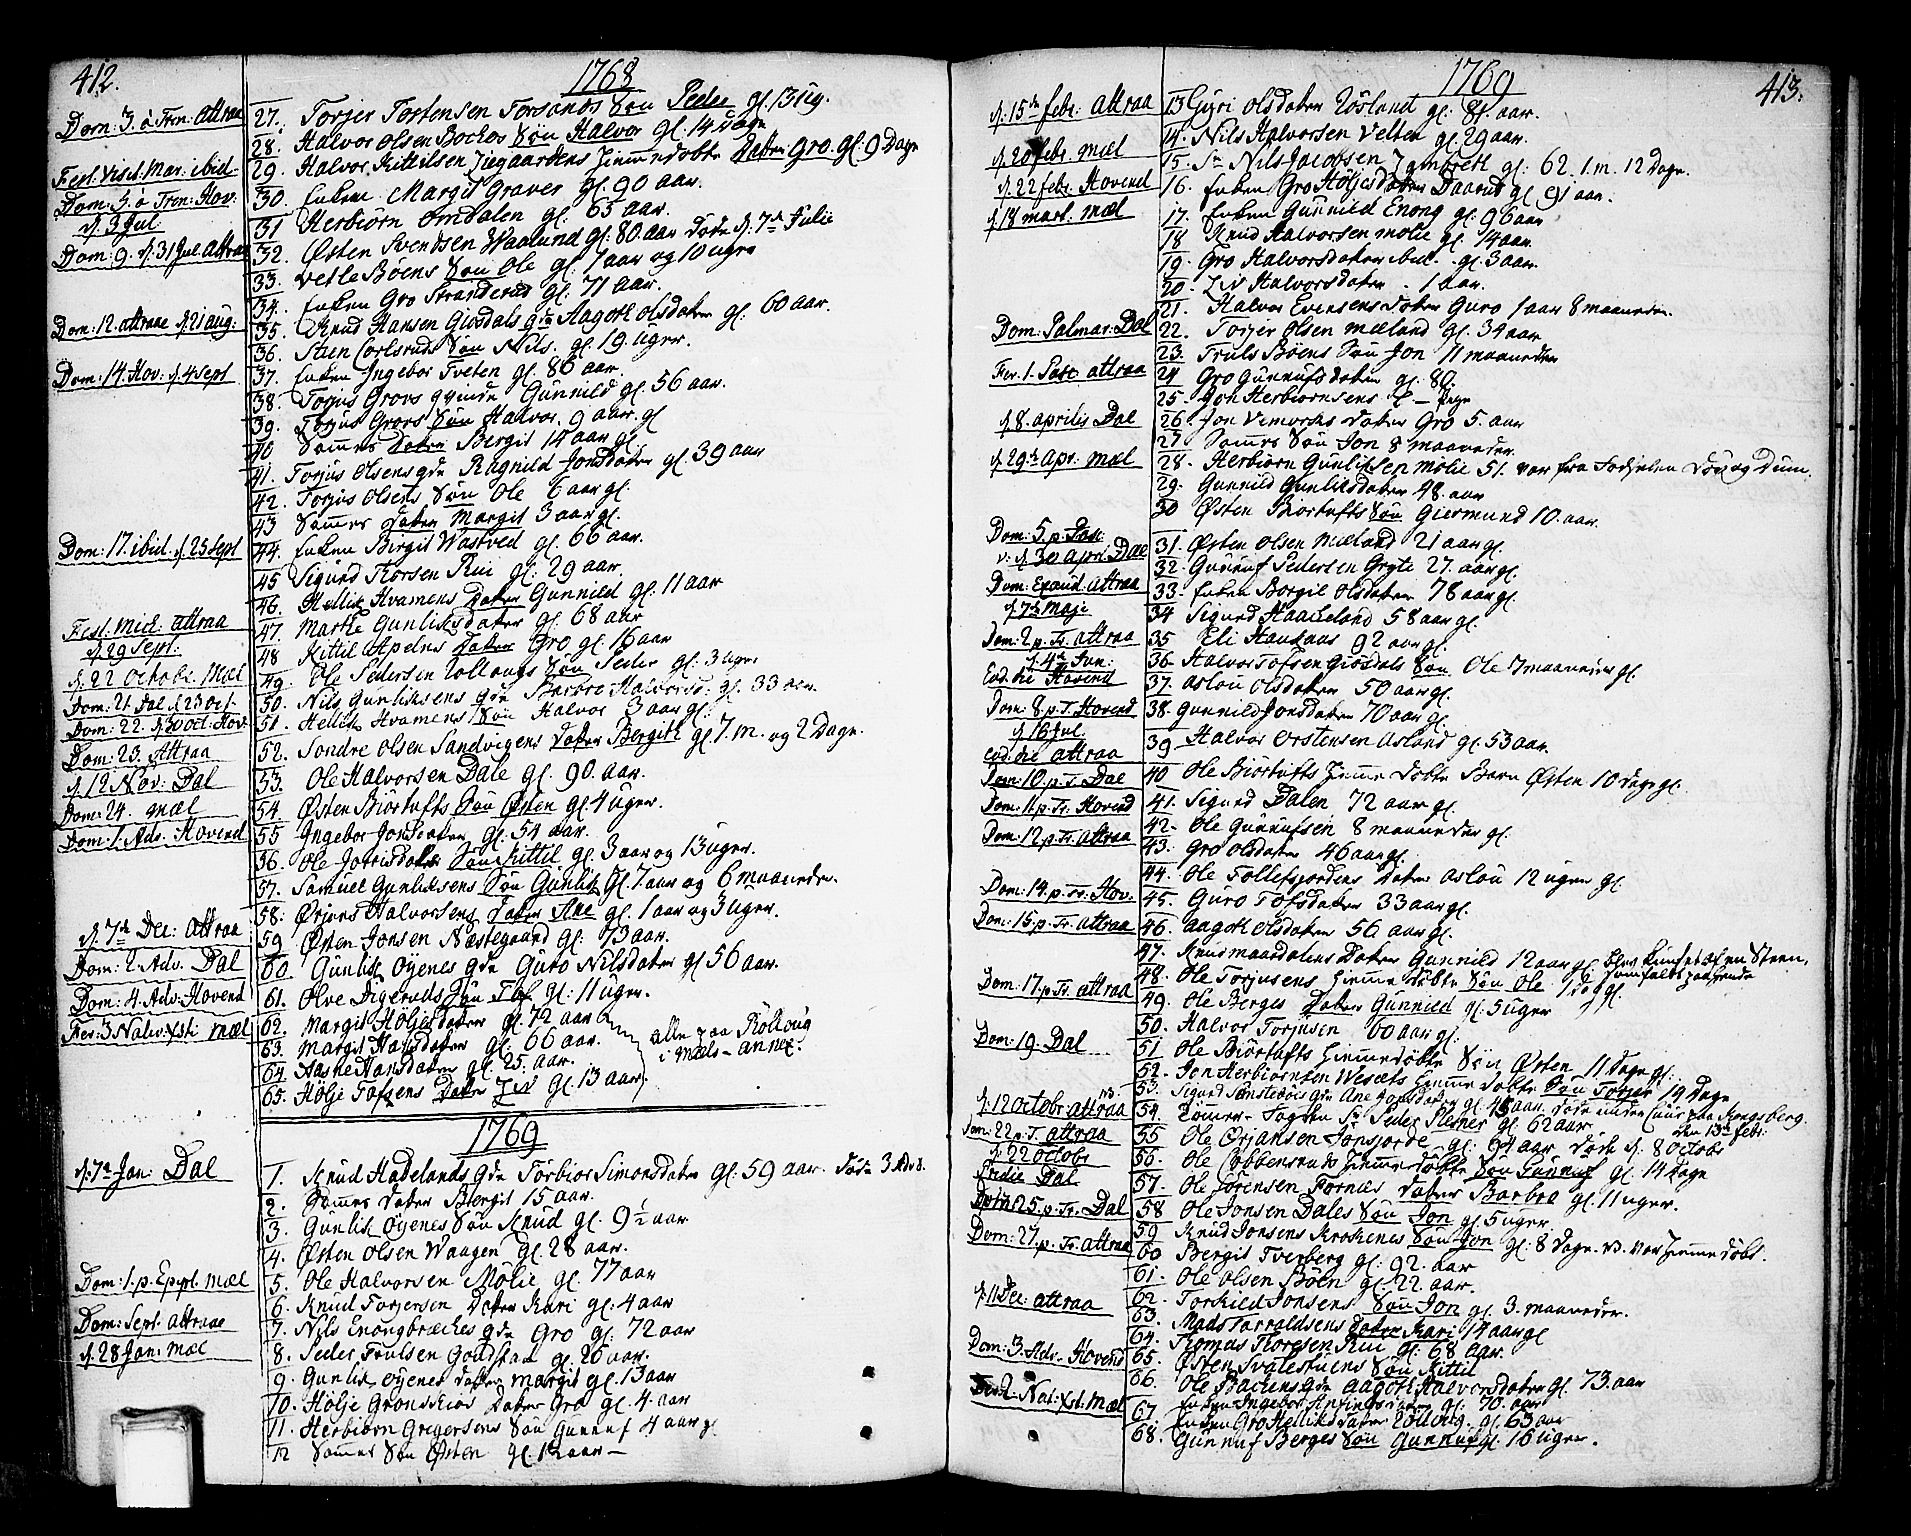 412.
1768
Dom. 3. à Tren: Attraa
27. Torjer Tostensen Torsands Søn Peder gl. 13 ug.
28. Halvor Olsen Bochos Søn Halvor gl. 14 Dage
29. Halvor Kittilsen Hiemmedøbte Datter Gro. gl. 9 Dage
Fest. Visit. Mar. ibid.
30. Enken Margit Graver gl. 90 aar.
Dom: 5. à Tren: Hov.
31 Herbiørn Omdalen gl. 63 aar.
d. 3 Jul.
32. Østen Svendsen Waalund gl. 80. aar døde d. 7de Julie
Dom: 9. d. 31 Jul. Attraa
33. Vetle Bøens Søn Ole gl. 1 aar og 10 uger
34. Enken Gro Stranderud gl. 71 aar.
Dom: 12. attraae d. 21 aug:
35. Knud Hansen Giøsdals qde Aagoth Olsdatter gl. 60 aar.
36. Sten Carlsruds Søn Nils. gl. 19 uger.
37. Enken Ingebor Tveten gl. 86 aar.
Dom: 14. Hov. d. 4 Sept
38. Torjus Grovs qvinde Gunnild gl. 56 aar.
39. Torjus Grovs Søn Halvor. 9 aar. gl
40 Sammes Datter Bergit 14 aar gl.
41. Torjus Olsens qde Ragnild Jonsdatter gl. 39 aar
42. Torjus Olsens Søn Ole 6 aar gl.
43 Sammes Datter Margit 3 aar gl.
Dom: 17. ibid. d. 25 Sept
44. Enken Birgit Wastved gl. 66 aar.
45 Sigurd Thorsen Rui gl. 29 aar.
46. Hellik Hvamens Datter Gunnild gl. 11 aar
Fest. Mich. attraa
47. Marthe Gunliksdatter gl. 68 aar
d. 29 Sept.
48 Kittil Apelns Datter Gro gl. 16 aar
d. 22 Octobr. Mæl
49. Ole Pedersen Søn Peder gl. 3 uger
Dom: 21. Dal d. 23 Oct.
50. Nils Gunliksens qde Barbro Halvorsd: gl. 33 aar.
Dom: 22. d. 30 Oct: Hov.
51. Hellik Hvamens Søn Halvor 3 aar gl.
Dom: 23. Attraa
52. Sondre Olsen Sandvigens Datter Bergith gl. 7. m. og 2 Dage.
d. 12 Nov: Dal
53. Ole Halvorsen Dale gl. 90. aar.
Dom: 24. mæl
54. Østen Biørtufts Søn Østen gl. 4 uger.
Dom: 1. Adv. Hovend
55 Ingebor Jonsdatter gl. 54 aar.
56. Ole Søn Kittil gl. 3 aar og 13 uger.
57. Samuel Gunliksens Søn Gunlik gl. 7 aar og 6 maaneder.
58. Ørjens Halvorsens Datter Ane gl. 1 aar og 3 uger.
d. 7de Dec: Attraa
59 Østen Jonsen Næstegaard gl. 73 aar.
Dom: 2. Adv. Dal
60 Gunlik Øyenes qde Guro Nilsdatter gl 56 aar.
Dom: 4. Adv: Hovend
61. Olve Digeruds Søn Tof gl: 11 uger.
Fer: 3 Nativ: Xsti mæl
62. Margit Høljesdatter gl. 72 aar
63. Margit Hansdatter gl: 66 aar.
64. Aasne Hansdatter gl. 25. aar.
65. Hølje Tofsens Datter Ziv gl. 13 aar.
alle paa Rollaug
i Mæls-annex.
1769
d. 7de Jan: Dal
1. Knud Hadelands qde Torbior Simonsdatter gl. 59 aar. døde 3 Adv 8.
2. Sammes Datter Bergit 15 aar.
3. Gunlik Øyenes Søn Knud gl. 9½ aar
4. Østen Olsen Waagen gl. 28 aar.
Dom: 1. p. Epipl. mæl
5. Ole Halvorsen Mølie gl. 77 aar
6. Knud Torjersen Datter Kari gl. 4 aar
Dom: Sept. attraae
7. Nils Enongbrækkes qde Gro gl. 72 aar
d. 28 Jan: mæl
8. Peder Truelsen gl. 26 aar.
9. Gunlik Øyenes Datter Margit gl. 13 aar
10. Hølje Datter Gro gl. 4. aar
11. Herbiørn Gregersens Søn Gunnuf 4 aar gl.
12 Sammes Søn Østen gl. 12 aar –
413.
1769
d. 15de febr. attraa
13 Gyri Olsdatter Røsland gl. 81. aar.
14. Nils Halvorsen Vetten gl 29 aar.
d. 20 febr. mæl
15. Sr Nils Jacobsen gl: 62. 1. m. 12 Dage.
d. 22 febr. Hovend
16. Enken Gro Høljesdatter Daarud gl 91 aar.
d. 18 mart. mæl
17. Enken Gunnild Enong gl. 96 aar
18 Knud Halvorsen mølie gl. 14 aar.
19. Gro Halvorsdatter ibid. gl. 3 aar.
20. Ziv Halvorsdatter . 1 aar.
21. Halvor Evensens Datter Guro 1 aar 8 maaneder.
Dom: Palmar. Dal
22. Torjer Olsen Mæland gl. 34 aar
23. Truls Bøens Søn Jon 11 maaneder
Fer. 1. Pasc attraa
24 Gro Gunnufsdatter gl. 80.
25. Joh Herbiørnsens
d. 8. aprilis Dal
26. Jon Vemorks Datter Gro 5. aar
27 Sammes Søn Jon 8 maaneder.
d. 29de Apr. mæl
28. Herbiørn Gunliksen mølie 51. var fra døv og Dum.
29. Gunnild Gunliksdatter 48. aar
30 Østen Biortufts Søn Giermund 10. aar.
Dom: 5. p. Pasc
v. d. 30 April Dal
31. Østen Olsen Mæland 21 aar gl.
32. Gunnuf Pedersen Gryte 27. aar gl.
Dom: Exaud. attraa
33. Enken Borgil Olsdatter 78 aar gl.
d. 7de maje
34 Sigurd Haadeland 58 aar gl.
Dom: 2 p. Tr. attraa
35 Eli Haukaas 92 aar gl.
d. 4de Jun:
36. Halvor Tofsen Giøsdals Søn Ole 7 maaneder gl.
Eod. die Hovend
37. Aslou Olsdatter 50 aar gl.
Dom: 8. p. T. Hovend
38. Gunnild Jonsdatter 70 aar gl.
d. 16 Jul.
39. Halvor Ørstensen Asland gl. 53 aar.
Eod. die attraa
Dom: 10. p. T. Dal
40 Ole Biørtufts Hiemmedøbte Barn Østen 10 dage gl.
Dom: 11. p. Tr. Hovend
41. Sigurd Dalen 72 aar gl.
Dom: 12 p. Tr. attraa
42. Ole Gunnufsen 8 maaneder gl.
43. Gro Olsdatter 46 aar gl.
44. Ole Tollefsjordens Datter Aslou 12 uger gl
Dom: 14. p. Tr. Hov.
45. Guro Tofsdatter 33 aar gl.
Dom: 15. p. Tr. attraa
46. Aagoth Olsdatter 56 aar gl.
47. Knusmaadalens Datter Gunnild 12 aar gl. blev af en Steen,
som faldt paa hende
Dom: 17. p. Tr. attraa
48. Ole Torjusens Hiemmedøbte Søn Ole 1 dag gl.
49. Ole Berges Datter Gunnild gl. 5 uger
50. Halvor Torjusen 60 aar gl.
Dom: 19. Dal
51 Ole Biørtufts Hiemmedøbte Søn Østen 11 Dage gl.
52. Jon Herbiørnsen Hiemmedøbte Søn Torjer 19 Dage
53. Sigurd qde Ane Jonsdatter gl. 45 aar. døde paa Kongsberg.
d. 12 Octobr: attraa
54. Sr Peder Pleiner gl. 62 aar den 13de febr.
Dom: 22 p. T. attraa
55 Ole Ørjansen gl. 64 aar døde d. 8 Octobr
d. 22 Octobr
56. Ole Hiemmedøbte Søn Gunnuf gl. 14 Dage
Dal
57. Ole Sørensen Fornæs Datter Barbra gl. 11 uger.
25. p. Tr. Dal
58 Ole Jonsen Dales Søn Jon gl. 5 uger
Dom: 27. p. Tr. attraa
59 Knud Jonsens Krokenes Søn Jon gl. 8 Dage. NB. var Hiemmedøbt.
60 Bergit Tverberg gl. 92. aar
61. Ole Olsen Bøen gl. 22. aar.
d. 11 Dec. attraa
62. Torkild Jonsens Søn Jon gl 3. maaneder.
63. Mads Tarraldsens Datter Kari 14 aar gl
64. Thomas Thoresen Rui gl. 68 aar.
Dom: 3. Adv. Hovend
65. Østen Svalestuens Søn Kittil
66. Ole Bachens qde Aagoth Halvorsdatter gl. 73. aar
2. Nat: Xsti mæl
67. Enken Ingebor gl. 70. aar
Enken Gro Helliksdatter gl. 63 aar
68. Gunnuf Berges Søn Gunnuf gl. 16 uger.